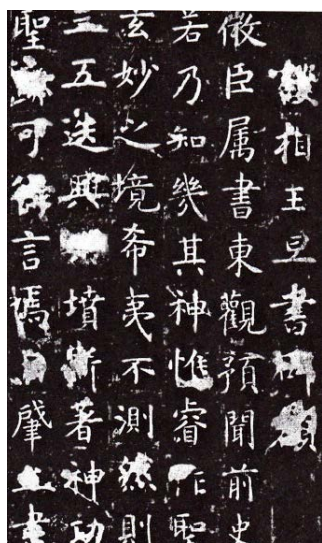 相王旦書碑額
微臣属書東觀預聞前史
若乃知幾其神惟睿作聖
玄妙之境希夷不測然則
三五迭興墳斯著神功
聖迹可得言焉自肇立書